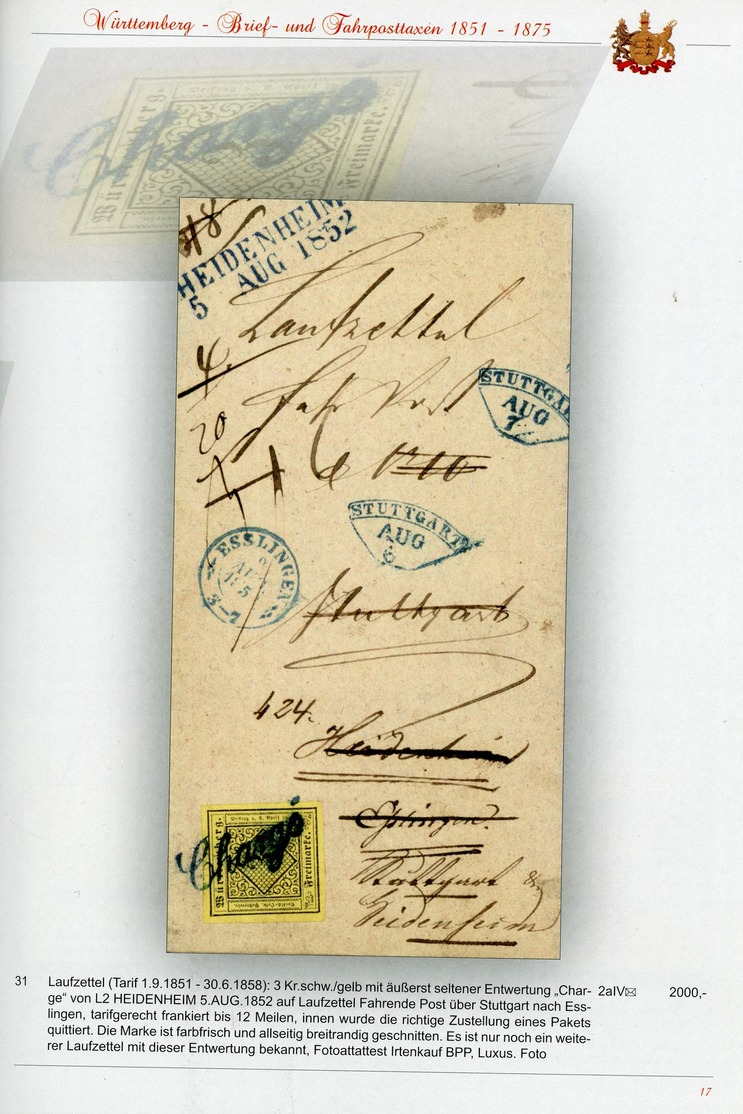 Württemberg - Brief- und Fahrposttaxen 1851 - 1875
Chargé
Württemberg.
Freimarke.
18
HEIDENHEIM
5 AUG 1852
Laufzettel
4
Fahr Post
STUTTGAR
AUG
7
20
STUTTGART
AUG
6
ESSLINGEN
AUG
3-7
Stuttgart
424.
Heidenheim
Eßlingen.
Chargé
Württemberg.
Freimarke.
Stuttgart
Heidenheim
31 Laufzettel (Tarif 1.9.1851 - 30.6.1858): 3 Kr.schw./gelb mit äußerst seltener Entwertung „Char- 2aIV✉ 2000,-
ge“ von L2 HEIDENHEIM 5.AUG.1852 auf Laufzettel Fahrende Post über Stuttgart nach Ess-
lingen, tarifgerecht frankiert bis 12 Meilen, innen wurde die richtige Zustellung eines Pakets
quittiert. Die Marke ist farbfrisch und allseitig breitrandig geschnitten. Es ist nur noch ein weite-
rer Laufzettel mit dieser Entwertung bekannt, Fotoattattest Irtenkauf BPP, Luxus. Foto
17